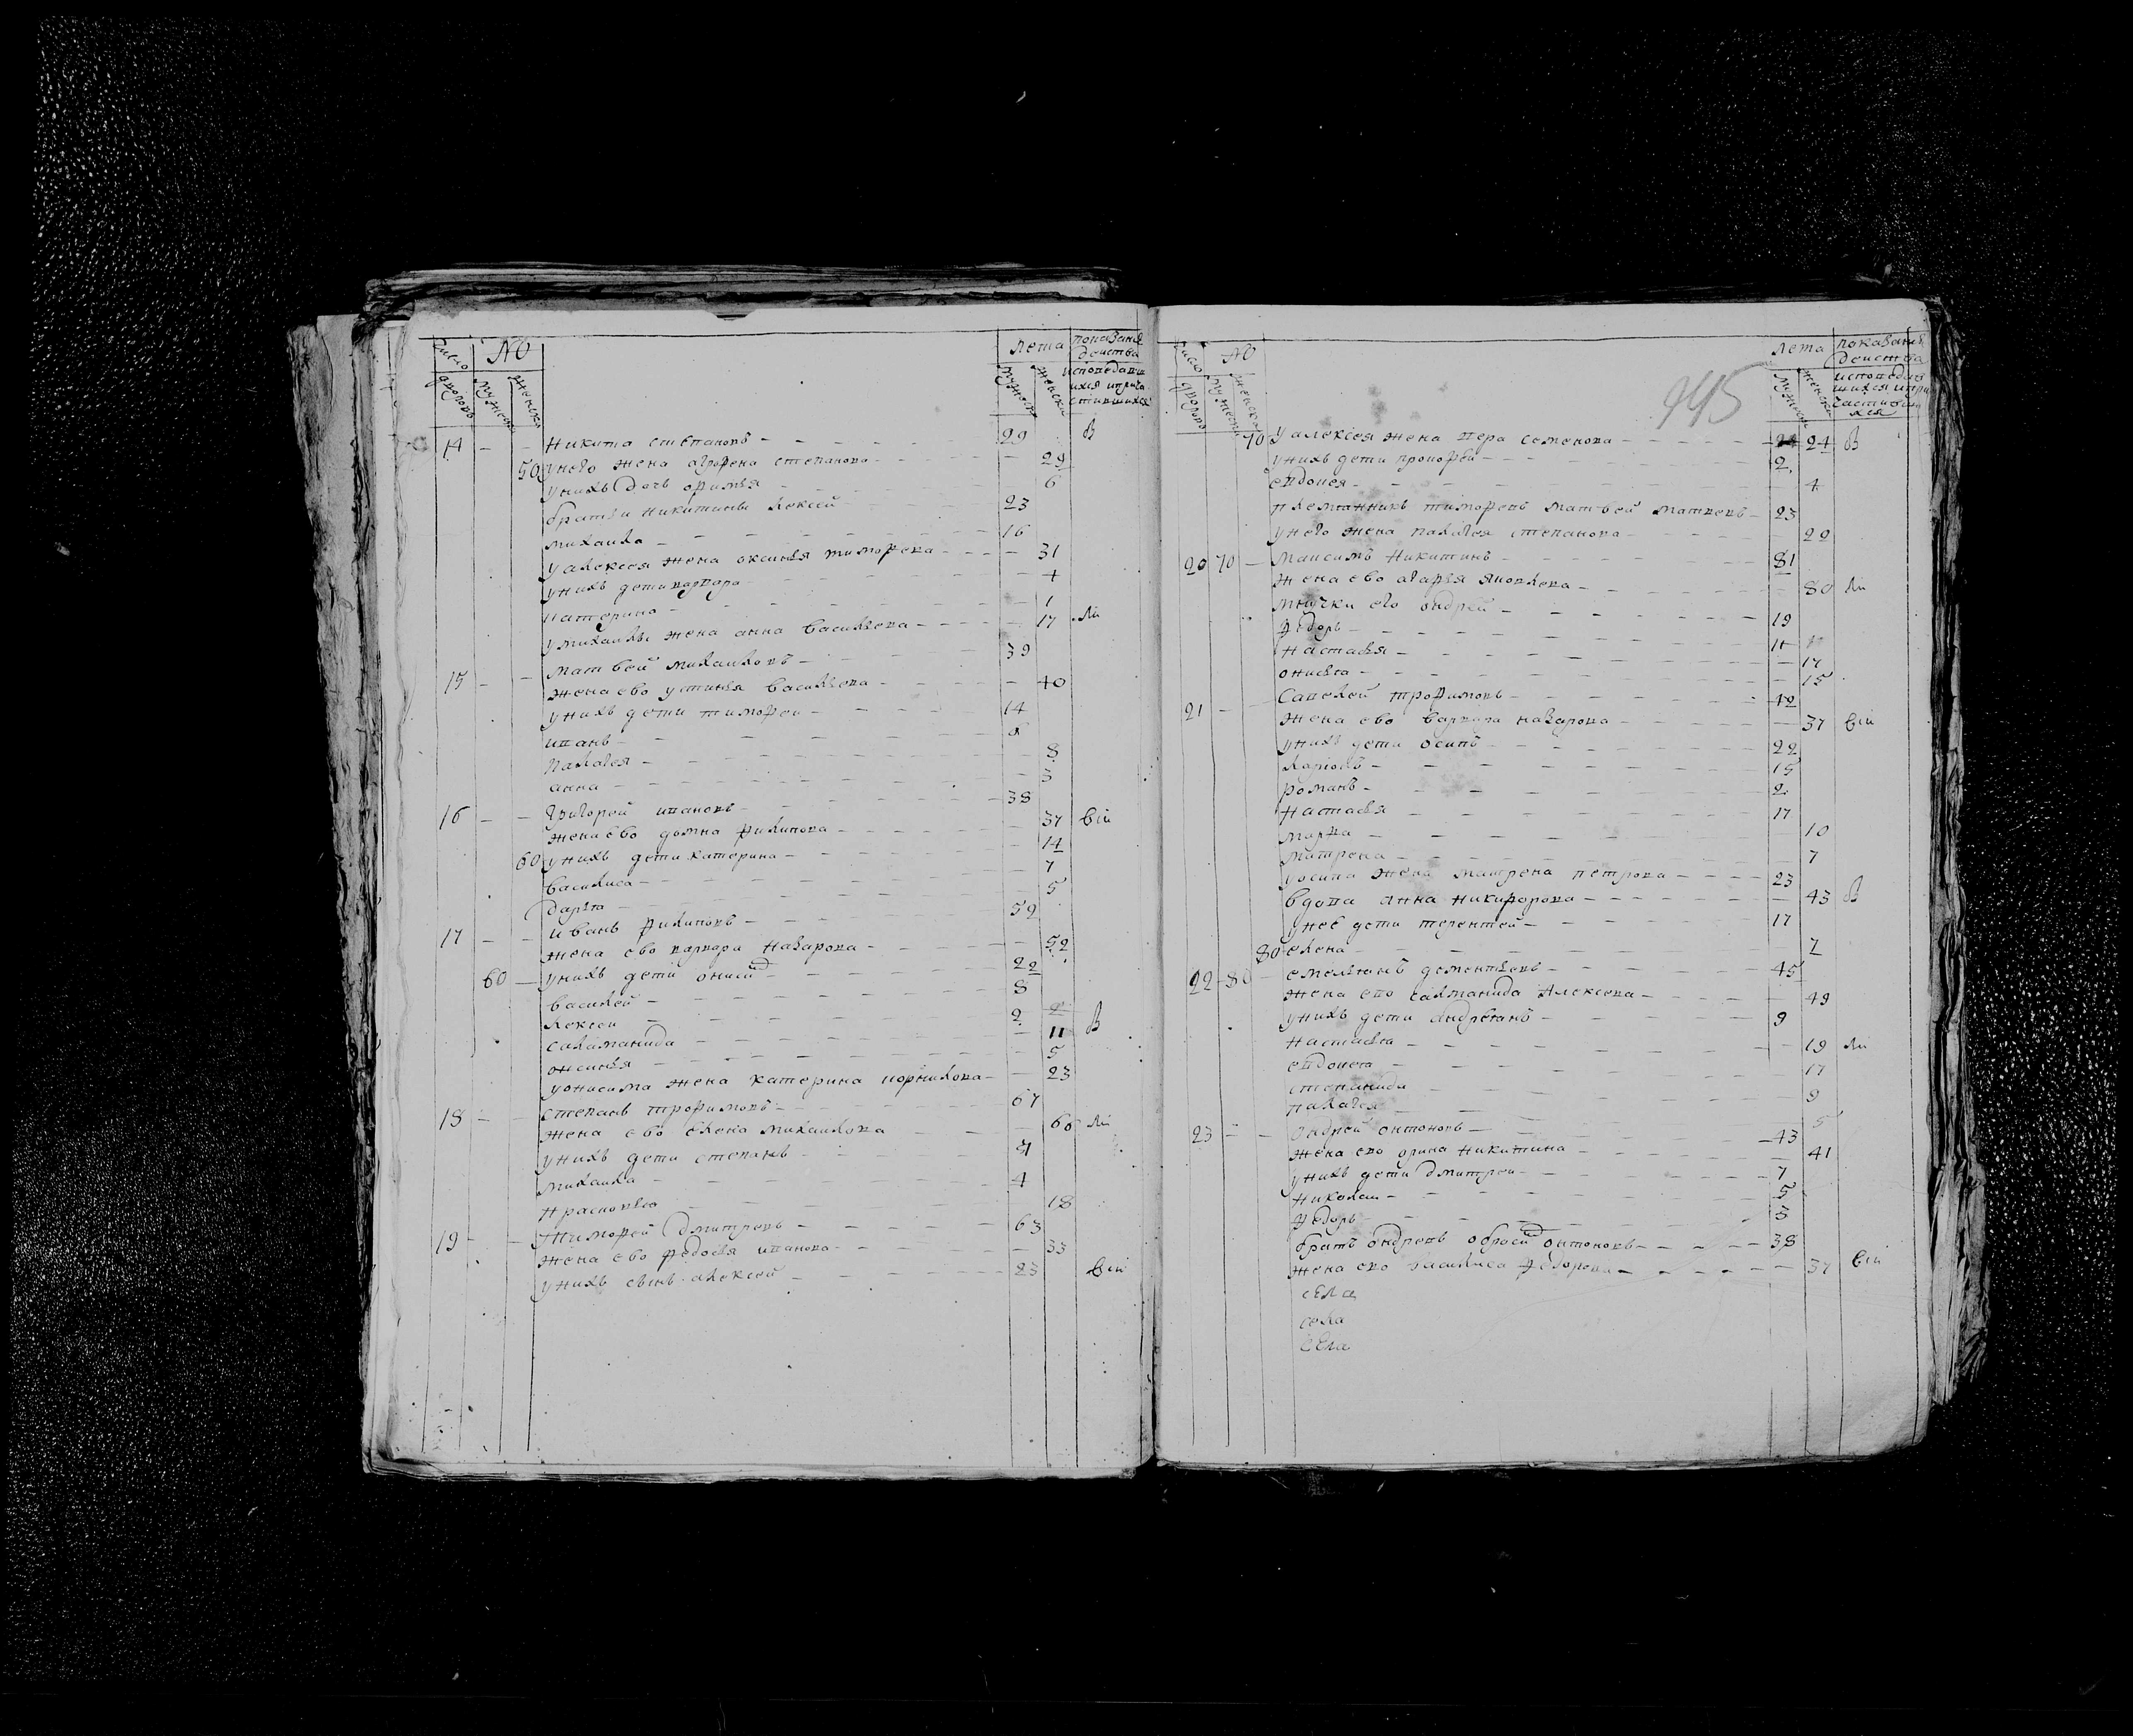 число дворовъ № мужеска женска лета мужеска женски показание действа исповедавшихся и причастившихся
14 - - Никита степановъ - 29 В
50 унего жена агрофена степанова - 29
унихъ дочь офимья - 6
братьи никитины Алексей - 23
михаила - 16
уалексея жена оксинья тимофева - 31
унихъ дети варвара - 4
катерина - 1
умихаилы жена анна васильева - 17
15 - - матвей михаиловъ - 39
жена ево устинья васильева - 40
унихъ дети тимофеи - 14
иванъ -
палагея - 8
анна - 3
16 - - Григорей ивановъ - 38
жена ево домна филипова - 37
60 унихъ дети катерина - 14
василиса - 7
дарья - 5
17 - - иванъ филиповъ - 59
жена ево варвара назарова - 52
60 - унихъ дети онисим - 22
василей - 8
Алексеи - 2
саламанида - 11 В
оксинья - 5
уонисима жена катерина корнилова - 23
18 - - степанъ трофимовъ - 67
жена ево елена михаилова - 60
унихъ дети степанъ -
михаила - 4
прасковья 18
19 - - Тимофей дмитревъ - 63
жена ево федосья иванова - 33
унихъ сынъ алексей - 23
число дворовъ № мужеска женска лета мужеска женски показание действа исповедавшихся и причастившихся
945
70 уалексея жена вера семенова - 24 В
унихъ дети прокофей - 2
евдокея - 4
племянникъ тимофевъ матвей матвевъ - 23
унего жена палагея степанова - 22
20 70 - максимъ никитинъ - 81
жена ево агафья яковлева - 80
внучки его ондрей - 19
федоръ - 11
настасья - 17
онисья - 15
21 - - савелей трофимовъ - 42
жена ево варвара назарова - 37
унихъ дети осипъ - 22
Ларионъ - 15
романъ - 2
настасья - 17
марфа - 10
матрена - 7
уосипа жена матрена петрова - 23
вдова анна никифорова - 43 В
унее дети терентей - 17
80 елена - 7
22 80 - емельянъ дементьевъ - 45
жена ево саломанида Алексева - 49
унихъ дети андреянъ - 9
настасья - 19
евдокея - 17
степанида - 9
палагея - 5
23 - - Ондрей онтоновъ - 43
жена ево орина никитина - 41
унихъ дети дмитреи - 7
николаи - 5
федоръ - 3
братъ ондревъ обросим онтоновъ - 38
жена ево василиса федорова - 37
села
села
села